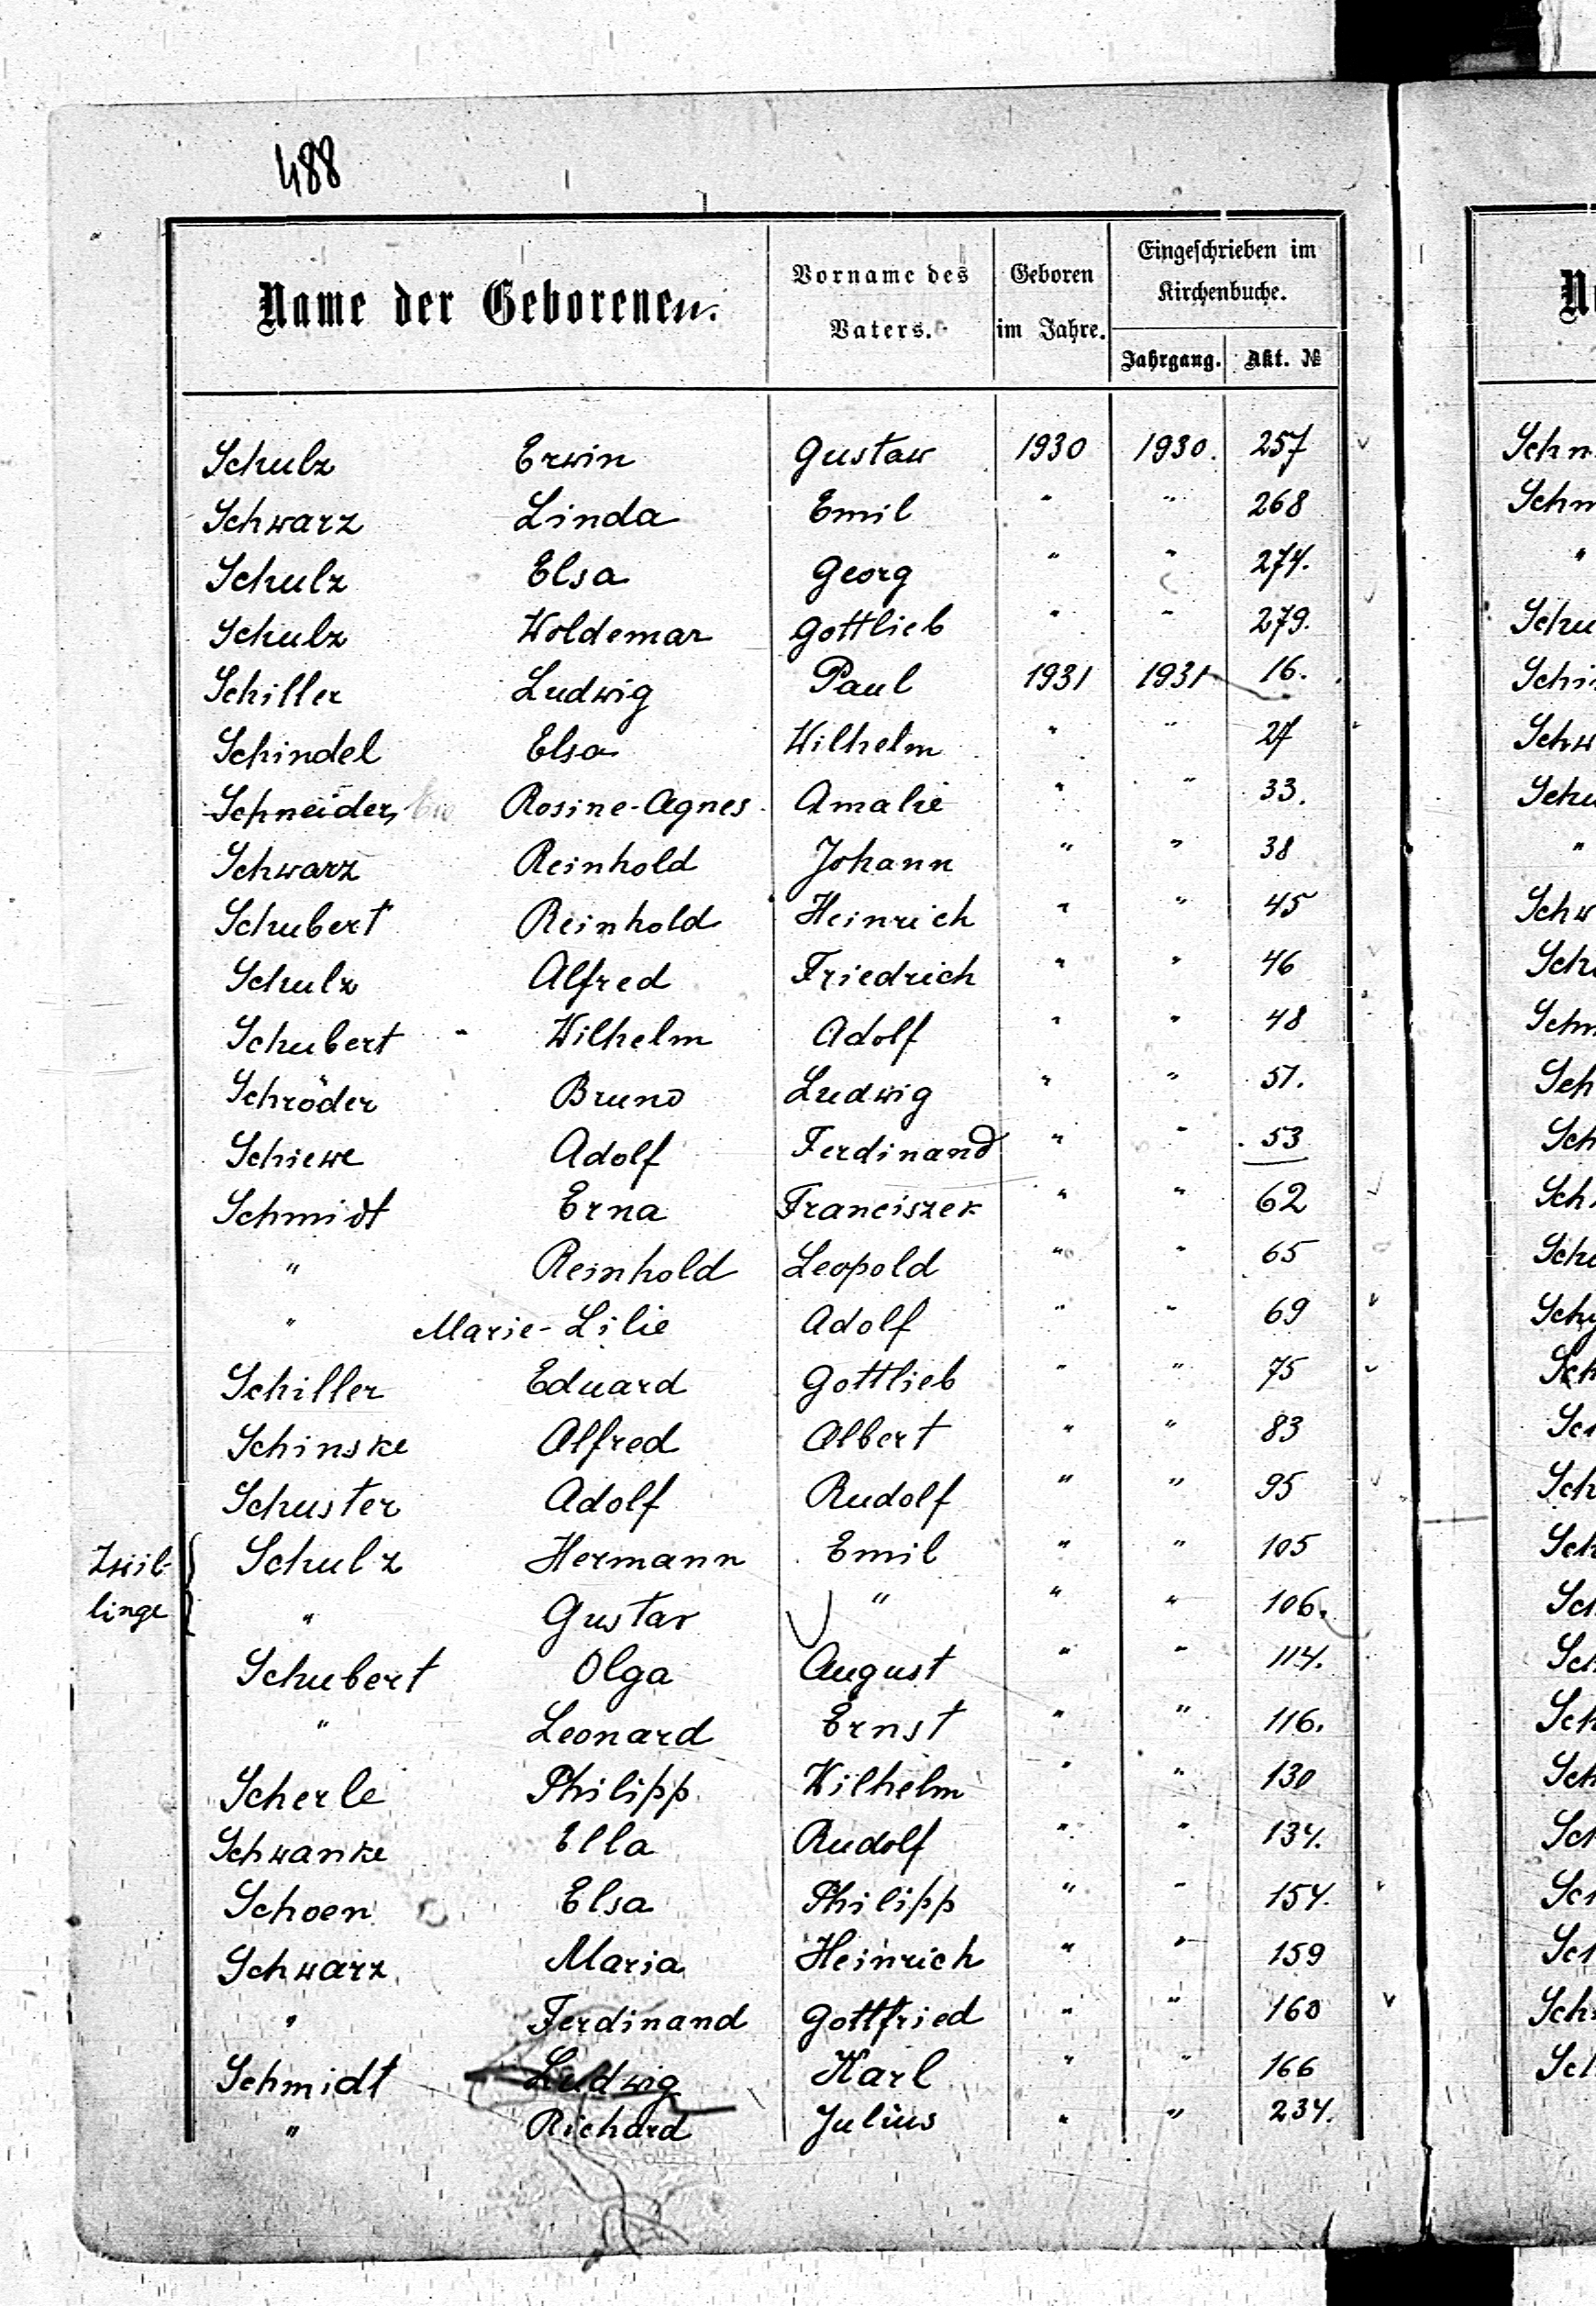 488
Name der Geborenen.
Vorname des Vaters.
Geboren im Jahre.
Eingeschrieben im Kirchenbuche.
Jahrgang. Akt. №
Schulz Erwin Gustaw 1930 1930. 257
Schwarz Linda Emil " " 268
Schulz Elsa Georg " " 274.
Schulz Woldemar Gottlieb " " 279.
Schiller Ludwig Paul 1931 1931 16.
Schindel Elsa Wilhelm " " 27
Schneider, Rosine-Agnes Amalie " " 33.
Schwarz Reinhold Johann " " 38
Schubert Reinhold Heinrich " " 45
Schulz Alfred Friedrich " " 46
Schubert Wilhelm Adolf " " 48
Schröder Bruno Ludwig " " 51.
Schiewe Adolf Ferdinand " " 53
Schmidt Erna Franciszek " " 62
" Reinhold Leopold " " 65
" Marie-Lilie Adolf " " 69
Schiller Eduard Gottlieb " " 75
Schinske Alfred Albert " " 83
Schuster Adolf Rudolf " " 95
Zwil- Schulz Hermann Emil " " 105
linge " Gustav " " " 106.
Schubert Olga August " " 114.
" Leonard Ernst " " 116.
Scherle Philipp Wilhelm " " 130
Schwanke Ella Rudolf " " 134.
Schoen Elsa Philipp " " 154.
Schwarz Maria Heinrich " " 159
" Ferdinand Gottfried " " 160
Schmidt Ludwig Karl " " 166
" Richard Julius " " 234.